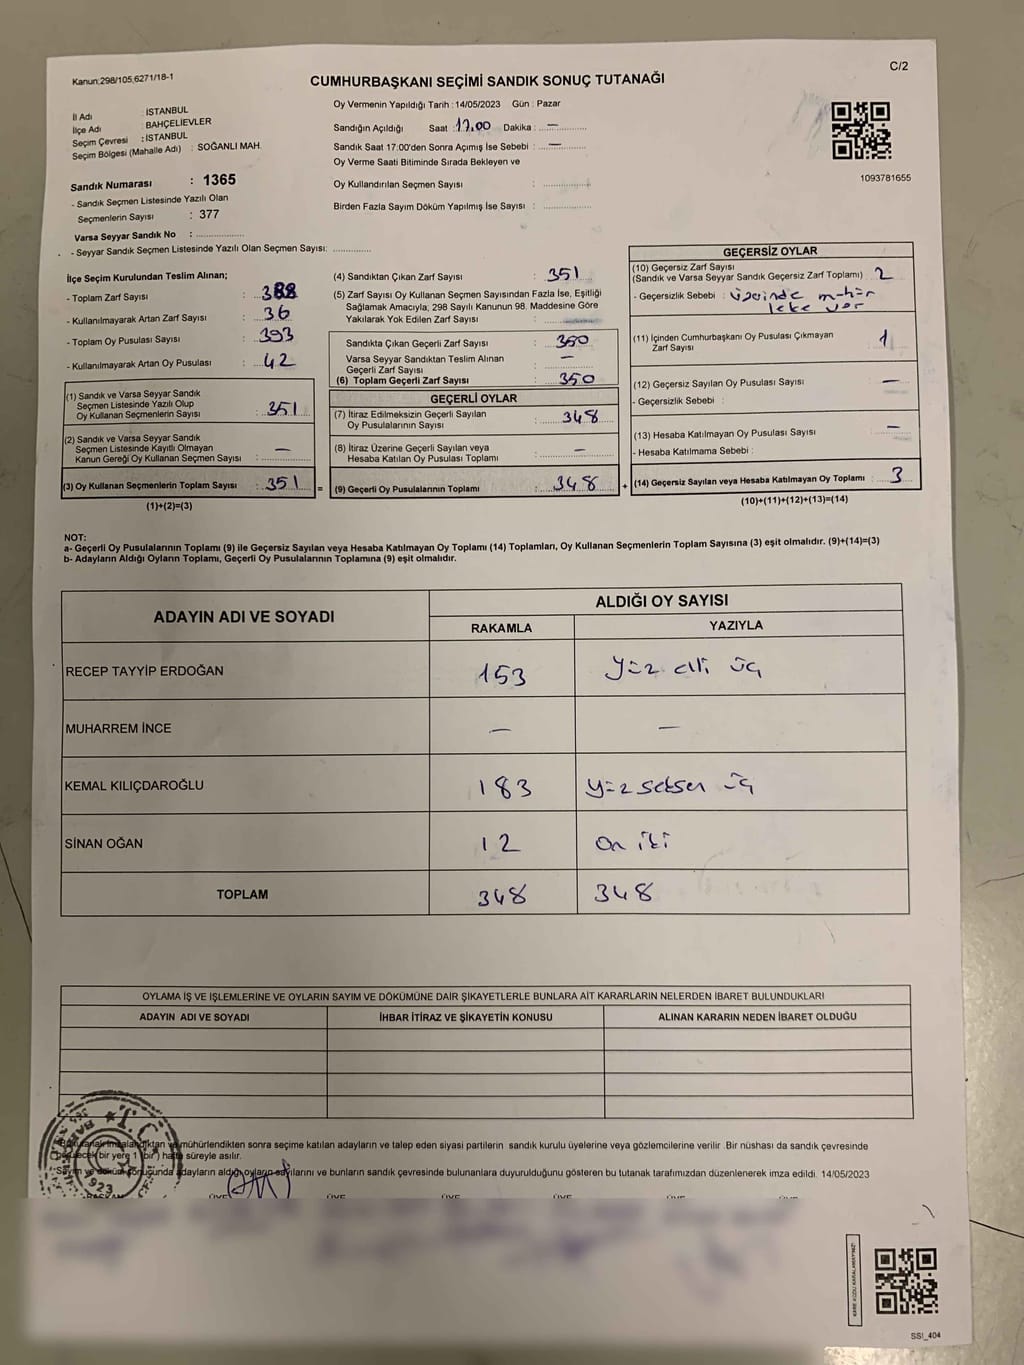 Kanun:298/105,6271/18-1
C/2
CUMHURBAŞKANI SEÇİMİ SANDIK SONUÇ TUTANAĞI
İl Adı : İSTANBUL
İlçe Adı : BAHÇELİEVLER
Seçim Çevresi : İSTANBUL
Seçim Bölgesi (Mahalle Adı) : SOĞANLI MAH.
Sandık Numarası : 1365
- Sandık Seçmen Listesinde Yazılı Olan
Seçmenlerin Sayısı : 377
Varsa Seyyar Sandık No : ..............
- Seyyar Sandık Seçmen Listesinde Yazılı Olan Seçmen Sayısı: ............
Oy Vermenin Yapıldığı Tarih : 14/05/2023 Gün : Pazar
Sandığın Açıldığı Saat : 17.00 Dakika : —
Sandık Saat 17:00'den Sonra Açımış İse Sebebi : —
Oy Verme Saati Bitiminde Sırada Bekleyen ve
Oy Kullandırılan Seçmen Sayısı : ..............
Birden Fazla Sayım Döküm Yapılmış İse Sayısı : ..............
1093781655
İlçe Seçim Kurulundan Teslim Alınan;
- Toplam Zarf Sayısı : 388
- Kullanılmayarak Artan Zarf Sayısı : 36
- Toplam Oy Pusulası Sayısı : 393
- Kullanılmayarak Artan Oy Pusulası : 42
(1) Sandık ve Varsa Seyyar Sandık
Seçmen Listesinde Yazılı Olup
Oy Kullanan Seçmenlerin Sayısı : 351
(2) Sandık ve Varsa Seyyar Sandık
Seçmen Listesinde Kayıtlı Olmayan
Kanun Gereği Oy Kullanan Seçmen Sayısı : —
(3) Oy Kullanan Seçmenlerin Toplam Sayısı : 351 =
(1)+(2)=(3)
(4) Sandıktan Çıkan Zarf Sayısı : 351
(5) Zarf Sayısı Oy Kullanan Seçmen Sayısından Fazla İse, Eşitliği
Sağlamak Amacıyla; 298 Sayılı Kanunun 98. Maddesine Göre
Yakılarak Yok Edilen Zarf Sayısı :
Sandıkta Çıkan Geçerli Zarf Sayısı : 350
Varsa Seyyar Sandıktan Teslim Alınan
Geçerli Zarf Sayısı : —
(6) Toplam Geçerli Zarf Sayısı : 350
GEÇERLİ OYLAR
(7) İtiraz Edilmeksizin Geçerli Sayılan
Oy Pusulalarının Sayısı : 348
(8) İtiraz Üzerine Geçerli Sayılan veya
Hesaba Katılan Oy Pusulası Toplamı : —
(9) Geçerli Oy Pusulalarının Toplamı : 348 +
GEÇERSİZ OYLAR
(10) Geçersiz Zarf Sayısı
(Sandık ve Varsa Seyyar Sandık Geçersiz Zarf Toplamı) : 2
- Geçersizlik Sebebi : üzerinde mühür
leke var
(11) İçinden Cumhurbaşkanı Oy Pusulası Çıkmayan
Zarf Sayısı : 1
(12) Geçersiz Sayılan Oy Pusulası Sayısı : —
- Geçersizlik Sebebi :
(13) Hesaba Katılmayan Oy Pusulası Sayısı : —
- Hesaba Katılmama Sebebi :
(14) Geçersiz Sayılan veya Hesaba Katılmayan Oy Toplamı : 3
(10)+(11)+(12)+(13)=(14)
NOT:
a- Geçerli Oy Pusulalarının Toplamı (9) ile Geçersiz Sayılan veya Hesaba Katılmayan Oy Toplamı (14) Toplamları, Oy Kullanan Seçmenlerin Toplam Sayısına (3) eşit olmalıdır. (9)+(14)=(3)
b- Adayların Aldığı Oyların Toplamı, Geçerli Oy Pusulalarının Toplamına (9) eşit olmalıdır.
ADAYIN ADI VE SOYADI
ALDIĞI OY SAYISI
RAKAMLA YAZIYLA
RECEP TAYYİP ERDOĞAN 153 yüz elli üç
MUHARREM İNCE — —
KEMAL KILIÇDAROĞLU 183 yüz seksen üç
SİNAN OĞAN 12 on iki
TOPLAM 348 348
OYLAMA İŞ VE İŞLEMLERİNE VE OYLARIN SAYIM VE DÖKÜMÜNE DAİR ŞİKAYETLERLE BUNLARA AİT KARARLARIN NELERDEN İBARET BULUNDUKLARI
ADAYIN ADI VE SOYADI İHBAR İTİRAZ VE ŞİKAYETİN KONUSU ALINAN KARARIN NEDEN İBARET OLDUĞU
mühürlendikten sonra seçime katılan adayların ve talep eden siyasi partilerin sandık kurulu üyelerine veya gözlemcilerine verilir. Bir nüshası da sandık çevresinde
bir yere 1 (bir) hafta süreyle asılır.
Sayım ve döküm sonucunda adayların aldığı oyların sayılarını ve bunların sandık çevresinde bulunanlara duyurulduğunu gösteren bu tutanak tarafımızdan düzenlenerek imza edildi. 14/05/2023
BAŞKAN ÜYE ÜYE ÜYE ÜYE ÜYE ÜYE
SSI_404